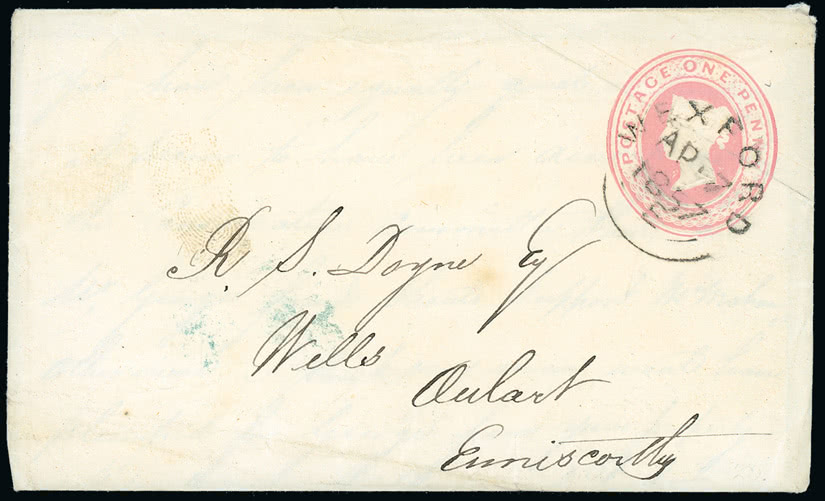 POSTAGE ONE PENNY
WEXFORD
AP
1857
R. S. Doyne Esq
Wells
Oulart
Enniscorthy